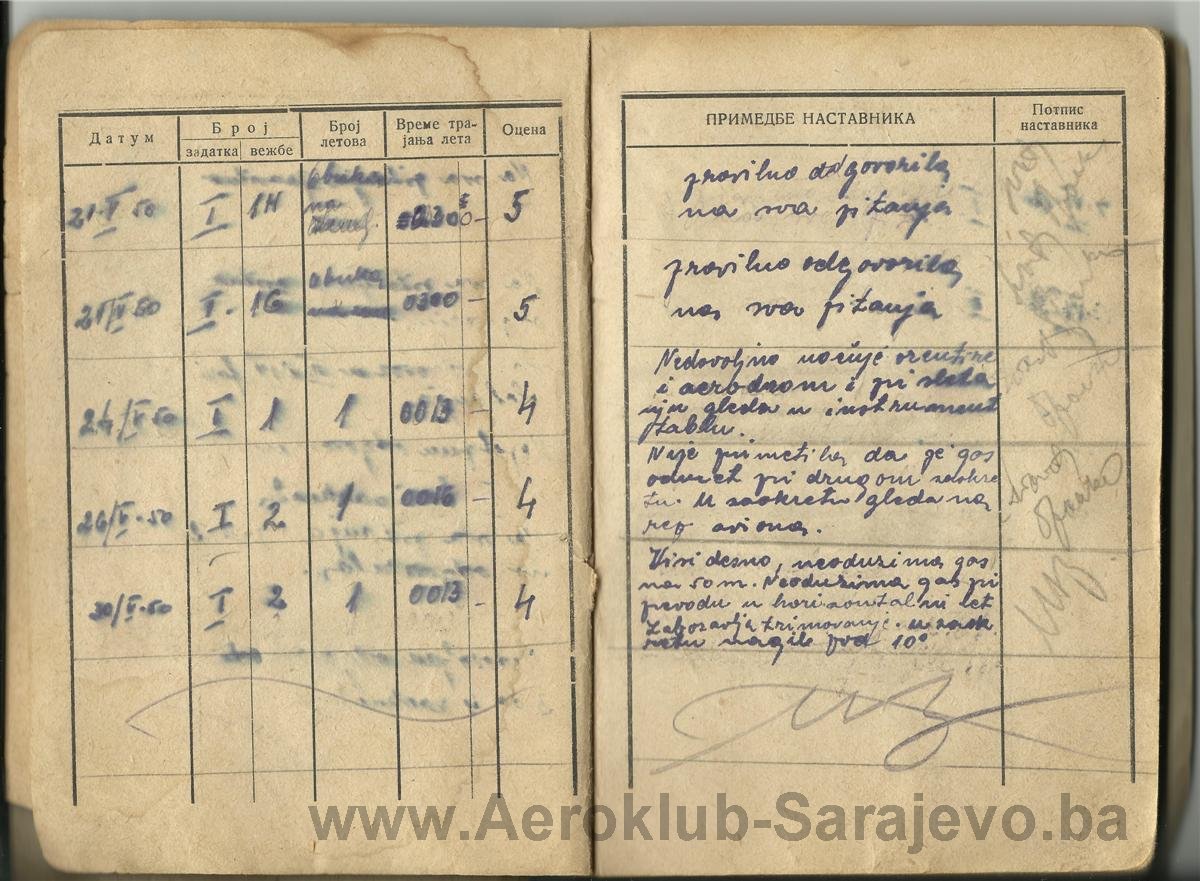 Датум
Број
задатка
вежбе
Број
летова
Време тра-
јања лета
Оцена
21.V 50
I
1H
obuka
na
5
21/V 50
I.
1G
obuka
0300
5
24/V 50
I
1
1
0013
4
26/V.50
I
2
1
0016
4
30/V.50
I
2
1
0013
4
ПРИМЕДБЕ НАСТАВНИКА
Потпис
наставника
pravilno odgovorila
na sva pitanja
pravilno odgovorila
na sva pitanja
Nedovoljno uočuje orentire
i aerodrom i pri sleta
nju gleda u instrument
tablu.
Nije primetila da je gas
oduzet pri drugom zaokre
tu. U zaokretu gleda na
rep aviona.
Visi desno, neoduzima gas
na 50 m. Neoduzima gas pri
prevodu u horizontalni let
Zaboravlja trimovanje. u zaok
retu nagib pod 10°
www.Aeroklub-Sarajevo.ba